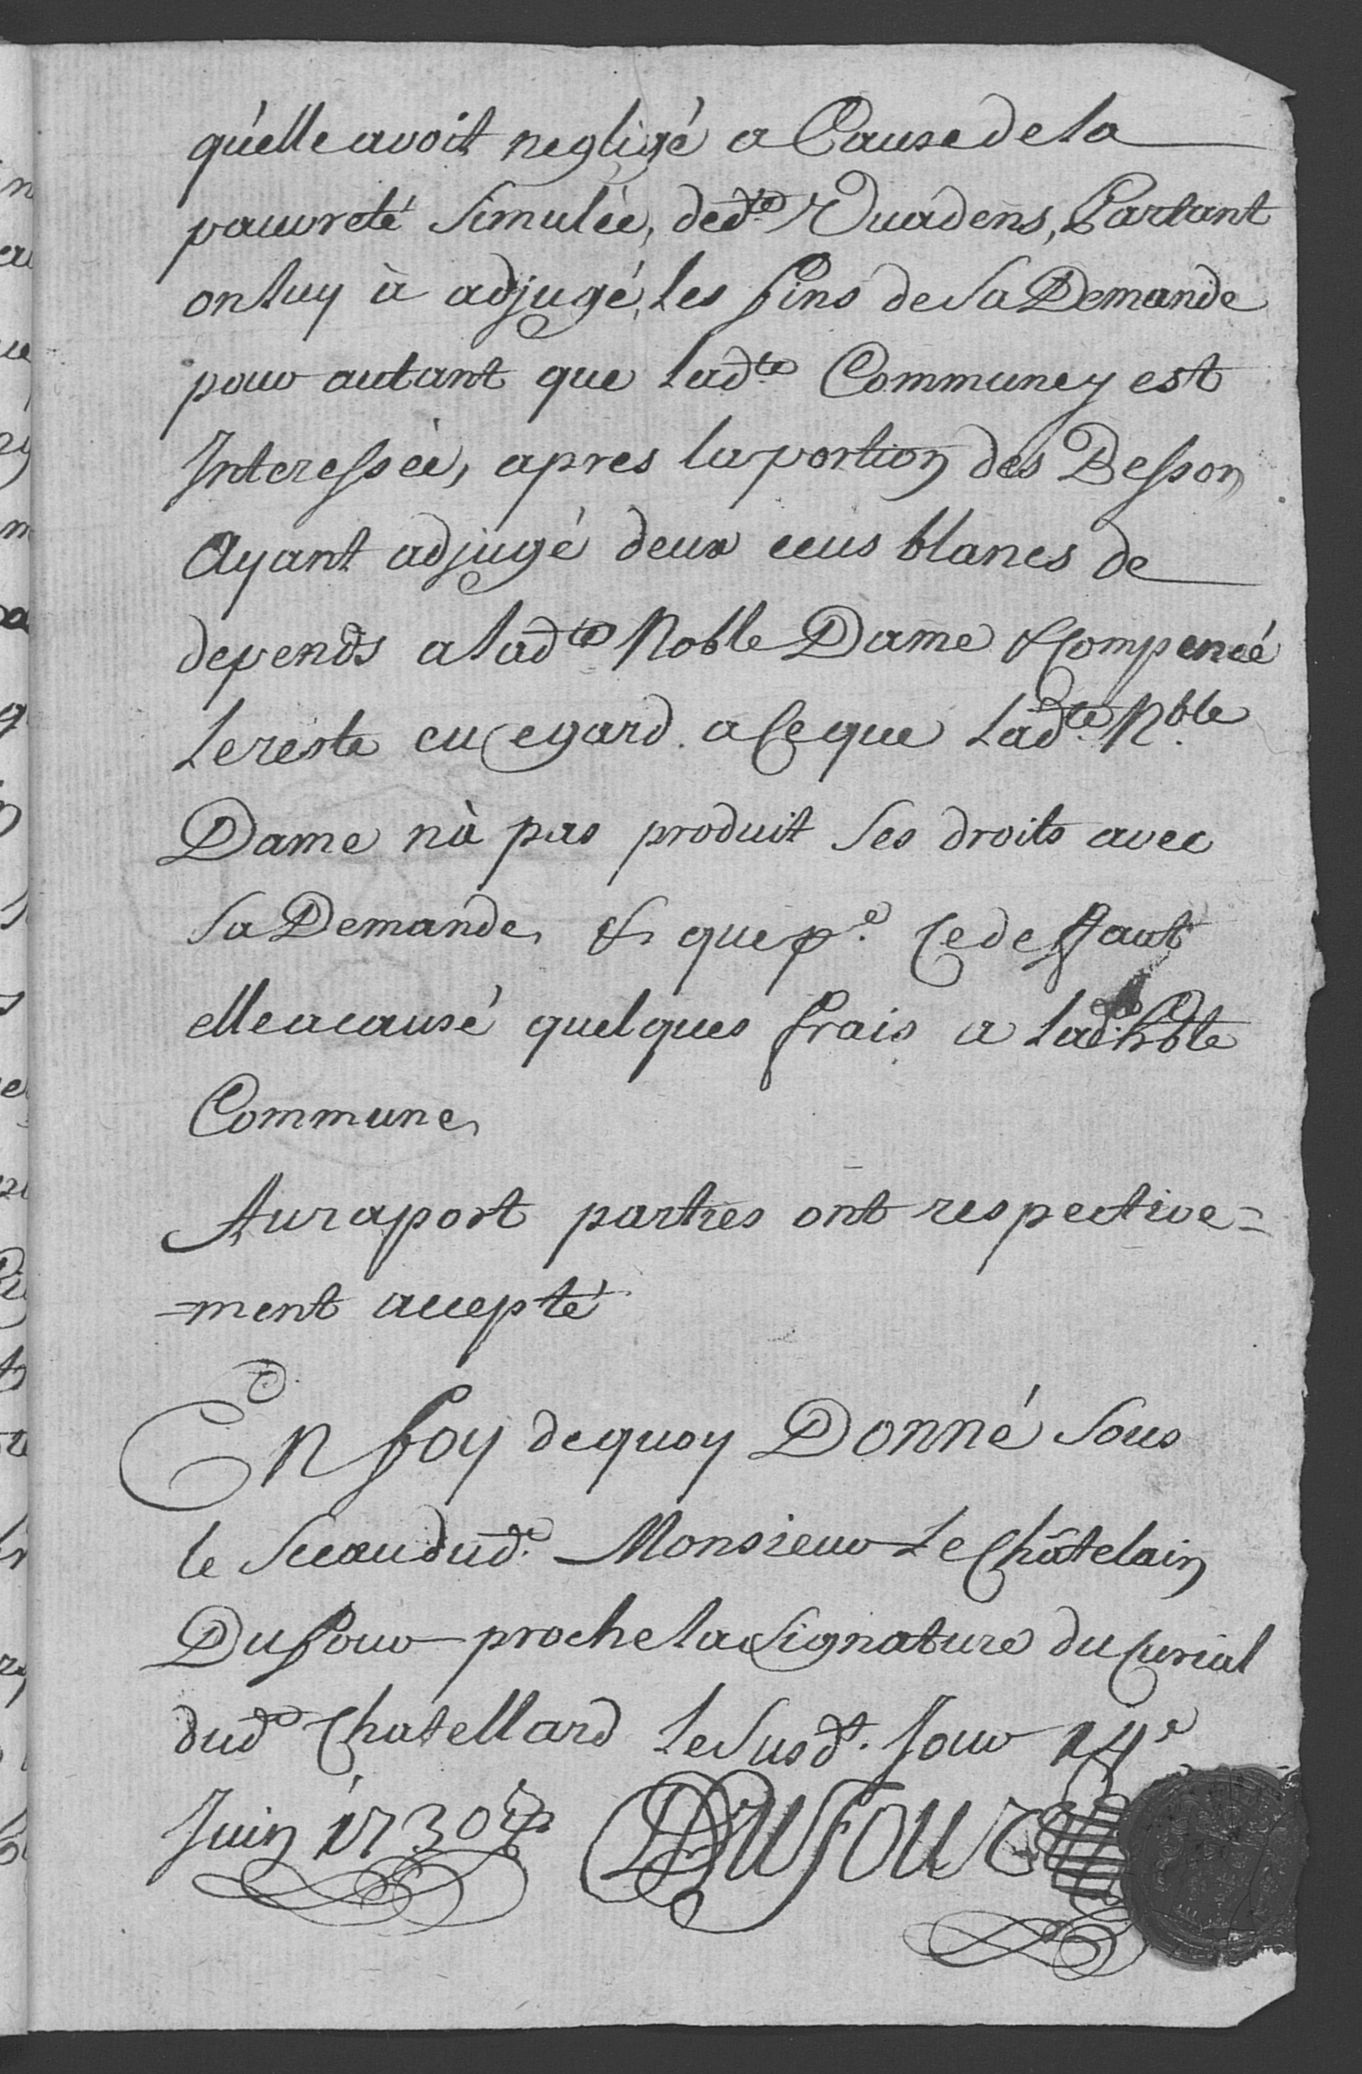 qu'elle avoit negligé a Cause de la
pauvreté simulée, dedte Vuadens, Partant
on luy à adjugé, les fins de sa Demande
pour autant que ladte Commune y est
Interessée, apres la portion des Besson
Ayant adjugé deux ecus blancs de
depends a ladte Noble Dame & Compencé
Le reste eu egard a Ce que Ladte Nble
Dame n'à pas produit ses droits avec
sa Demande, & que pr. Ce deffaut
elle a causé quelques frais a Ladte hble
Commune,
Au raport parties ont respective=
=ment accepté
En foy de quoy Donné sous
le Sceau dud. Monsieur Le Châtelain
Dufour proche la Signature du Curial
dud. Chatellard Le susdt. Jour 14e
Juin 1730 Dufour